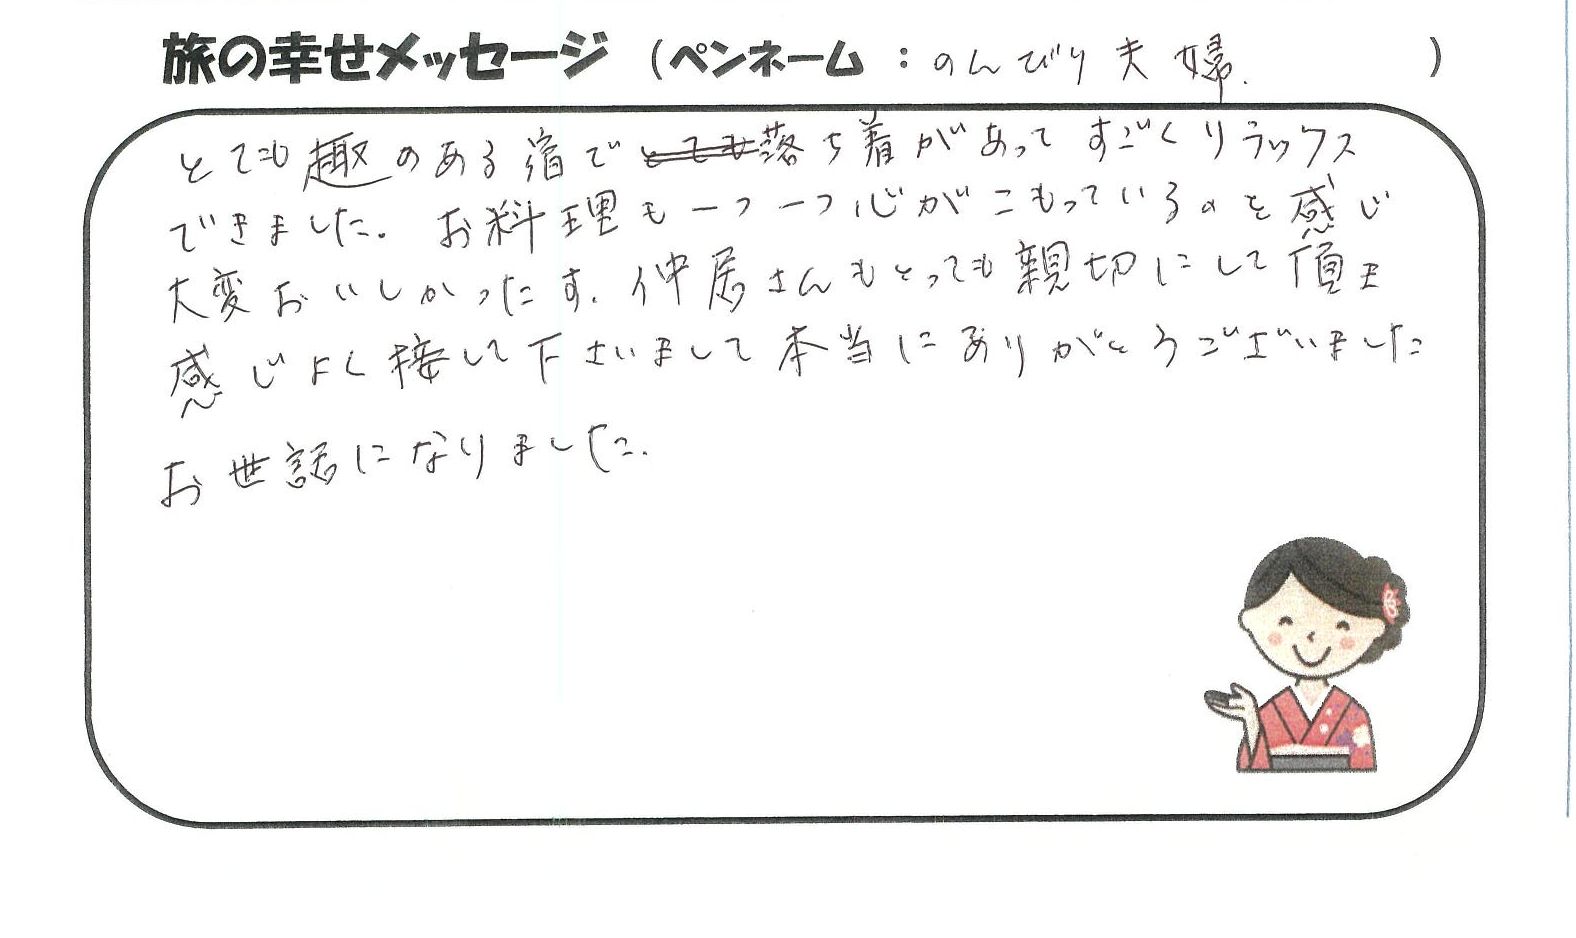 旅の幸せメッセージ（ペンネーム：のんびり夫婦. ）
とても趣のある宿でとても落ち着があってすごくリラックス
できました。お料理も一つ一つ心がこもっているのを感じ
大変おいしかったす. 仲居さんもとっても親切にして頂き
感じよく接して下さいまして本当にありがとうございました
お世話になりました.